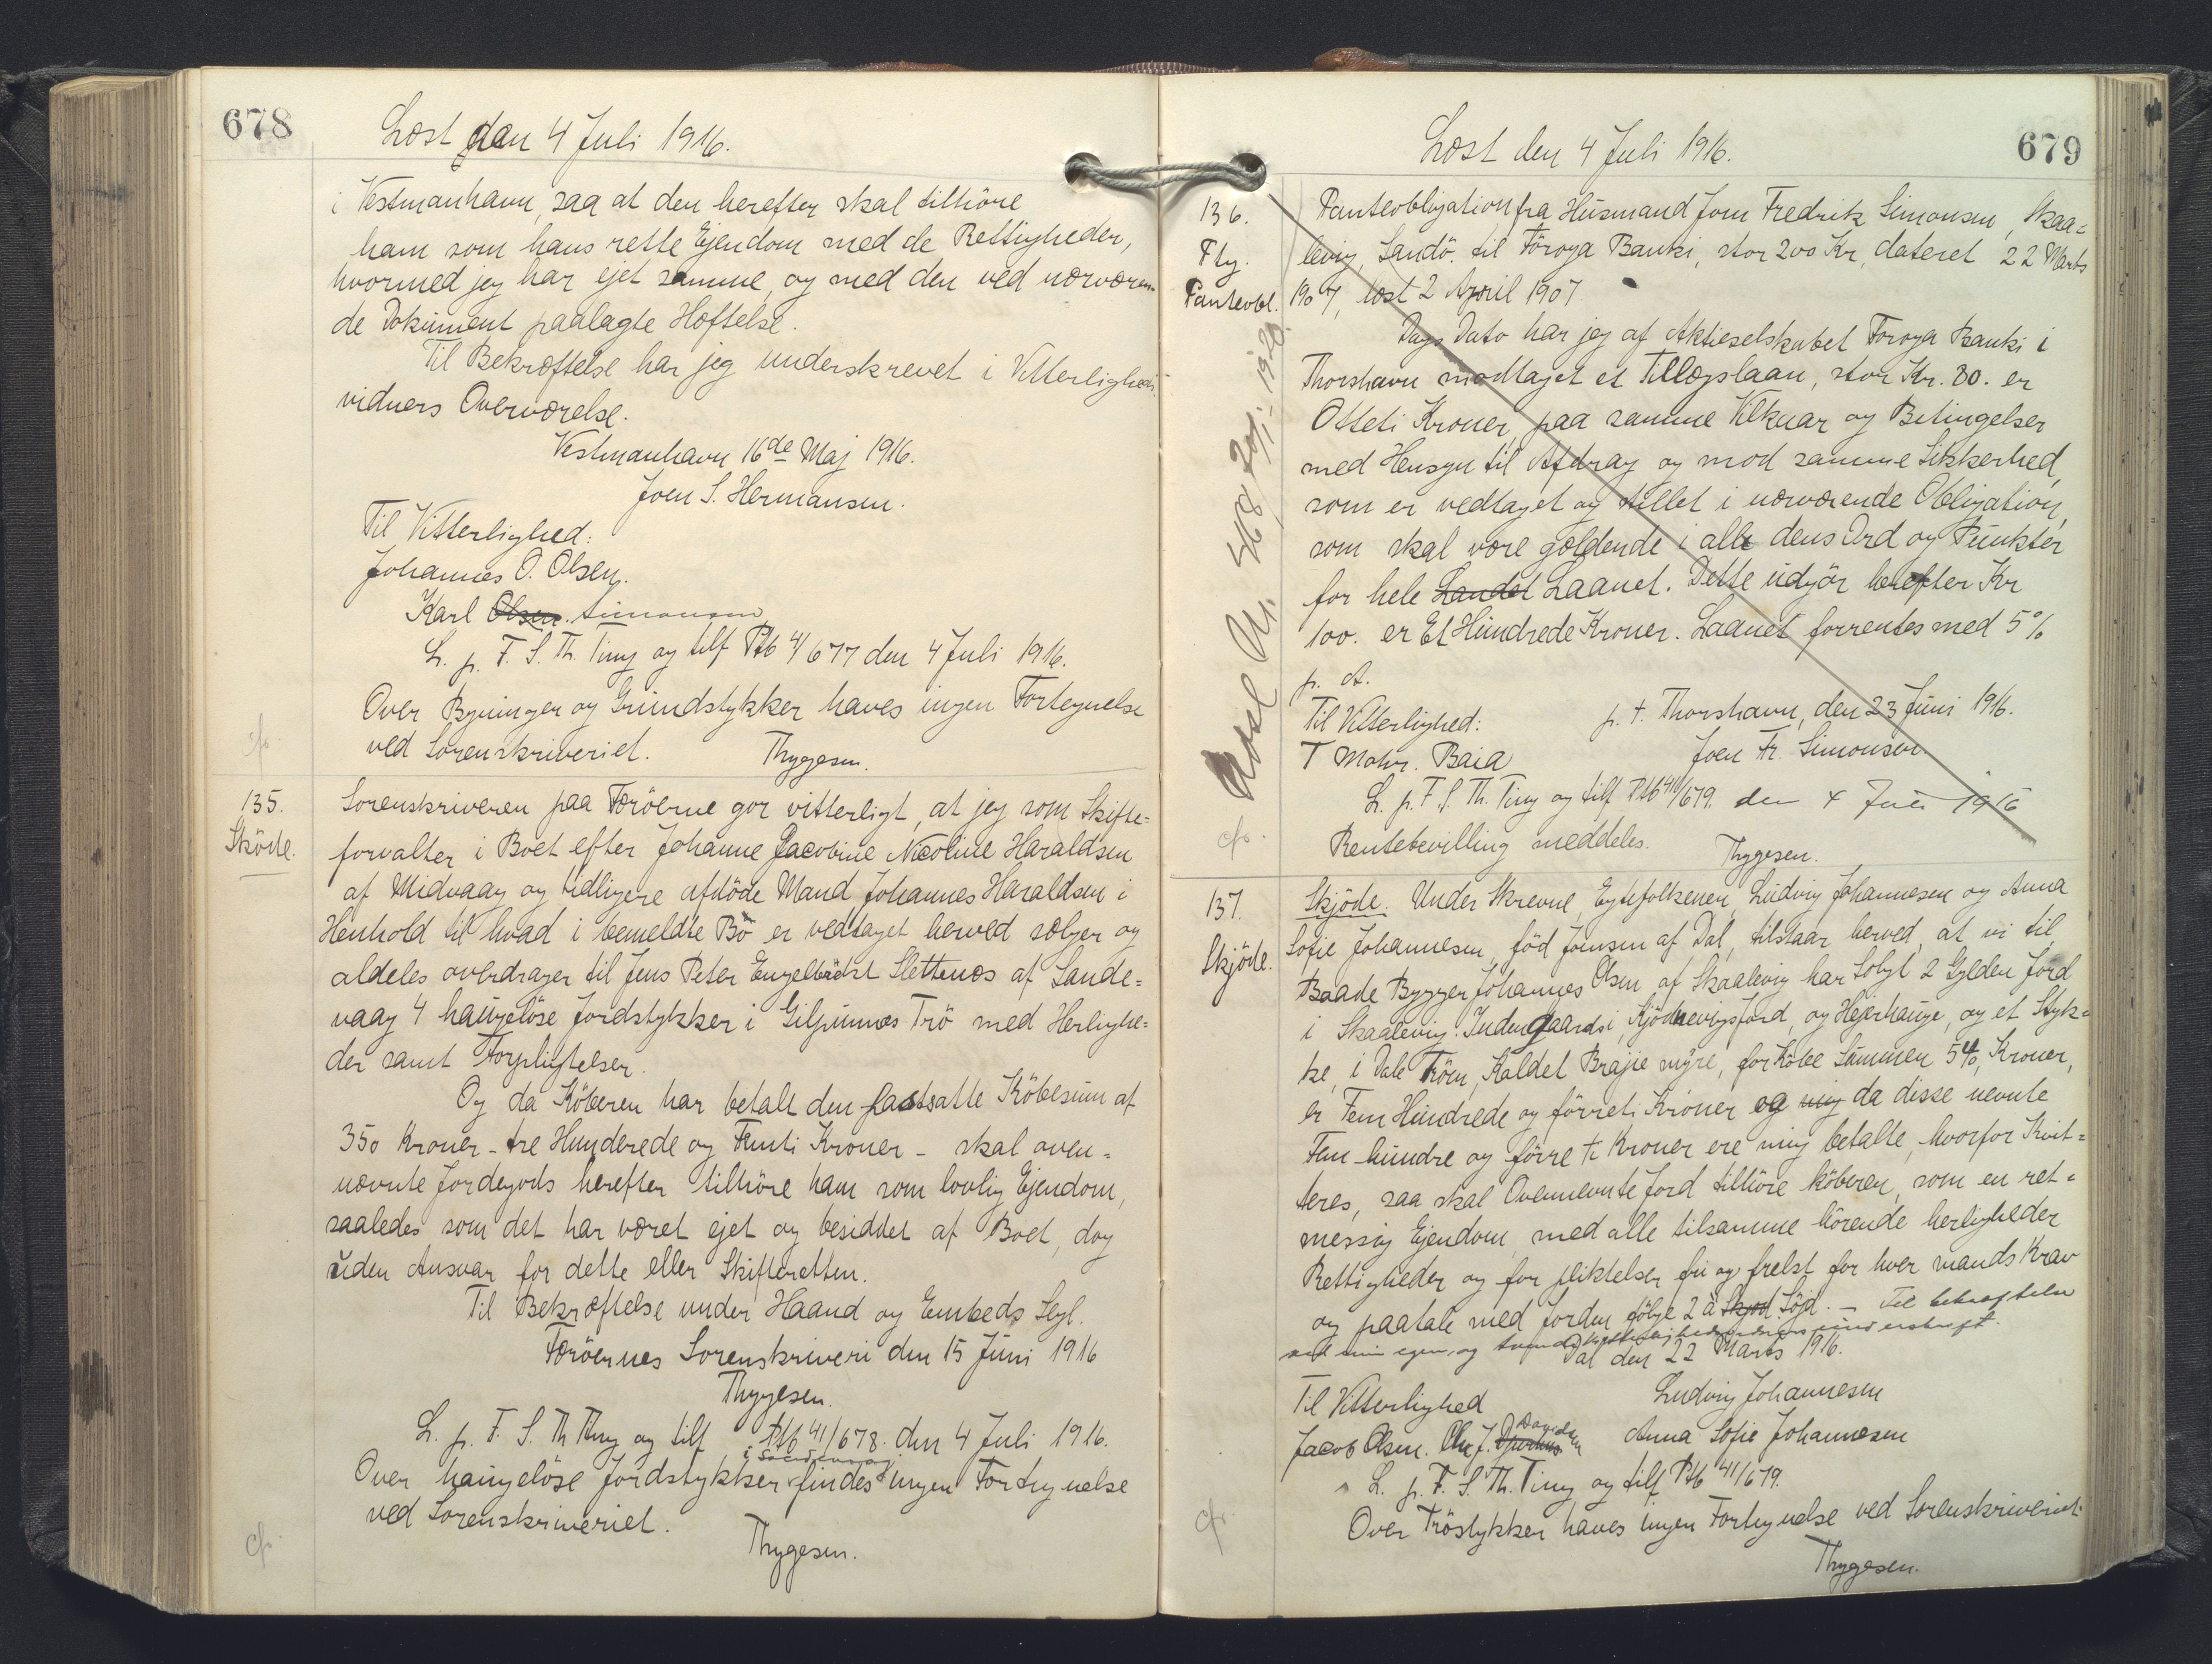 678
Læst den 4 Juli 1916.
i Vestmanhavn, saa at den herefter skal tilhöre
ham som hans rette Ejendom med de Rettigheder,
hvormed jeg har ejet samme, og med den ved nærværen-
de Dokument paalagte Hæftelse.
Til Bekræftelse har jeg underskrevet i Vitterligheds
vidners Overværelse.
Vestmanhavn 16de Maj 1916.
Joen S. Hermansen.
Til Vitterlighed:
Johannes O. Olsen.
Karl Olsen. Simonsen
L. p. F. S. Th. Ting og tilf Ptb 41/677 den 4 Juli 1916.
Over Bygninger og Grundstykker haves ingen Fortegnelse
ved Sorenskriveriet. Thygesen.
cfr.
135.
Sköde.
Sorenskriveren paa Færöerne gör vitterligt, at jeg som Skifte=
forvalter i Boet efter Johanne Jacobine Nicoline Haraldsen
af Midvaag og tidligere afdöde Mand Johannes Haraldsen i
Henhold til hvad i bemeldte Bo er vedtaget herved sælger og
aldeles overdrager til Jens Peter Engelbrekt Slettenæs af Sande=
vaag 4 haugelöse Jordstykker i Giljunnæs Trö med Herlighe=
der samt Forpligtelser.
Og da Köberen har betalt den fastsatte Köbesum af
350 Kroner - tre Hunderede og Femti Kroner - skal oven=
nævnte Jordegods herefter tilhöre ham som lovlig Ejendom,
saaledes som det har været ejet og besiddet af Boet, dog
uden Ansvar for dette eller Skifteretten.
Til Bekræftelse under Haand og Embeds Segl.
Færöernes Sorenskriveri den 15 Juni 1916
Thygesen.
L. p. F. S. Th Ting og tilf Ptb 41/678. den 4 Juli 1916.
i Sandevaag
Over haugelöse Jordstykker findes ingen Fortegnelse
ved Sorenskriveriet.
Thygesen.
cfr.
679
Læst den 4 Juli 1916.
136.
Ftg.
Panteobl.
Panteobligation fra Husmand Joen Fredrik Simonsen, Skaa=
levig, Sandö. til Föroya Banki, stor 200 Kr, dateret 22 Marts
1907, læst 2 April 1907
Dags Dato har jeg af Aktieselskabet Foroya Banki i
Thorshavn modtaget et Tillægslaan, stor Kr. 80. er
Otteti Kroner, paa samme Vilkaar og Betingelser
med Hensyn til Afdrag og mod samme Sikkerhed,
som er vedtaget og stillet i nærværende Obligation,
som skal være gældende i alle dens Ord og Punkter
for hele Landet Laanet. Dette udgör herefter Kr
100. er Et Hundrede Kroner. Laanet forrentes med 5%
p. A.
Til Vitterlighed: p. t. Thorshavn, den 23 Juni 1916.
T Mohr. Baia Joen Fr. Simonsen
L. p. F. S. Th. Ting og tilf Ptb 41/679. den 4 Juli 1916
Rentebevilling meddeles. Thygesen.
cfr.
137.
Skjöde.
Skjöde. Under Skrevne, Egtefolkenen, Ludvig Johannesen og Anna
Sofie Johannesen, föd Joensen af Dal, tilstaar herved, at vi til
Baade Bygger Johannes Olsen af Skaalevig har Solgt 2 Gylden Jord
i Skaalevig. Indengaards i, og Hejerhauge, og et Styk=
ke, i Dale Tröen, Kaldet Brajie myre, for Köbe Summen 540, Kroner,
er Fem Hundrede og förreti Kroner og mig da disse nevnte
Fem-hundre og förre ti Kroner ere mig betalte, hvorfor Kvit=
teres, saa skal Ovennevnte Jord tilhöre köberen, som en ret=
messig Ejendom, med alle tilsamme hörende herligheder
Rettigheder og for pliktelser fri og frelst for hver mands Krav
og paatale med Jorden fölge 2 á Skjod Söjd. - Til bekræftelse
ved min egen, og tvende Vitterlighedsvidners underskrift.
Dal den 22 Marts 1916.
Til Vitterlighed Ludvig Johannesen
Davidsen
Jacob Olsen. Ole J. Anna Sofie Johannesen
L. p. F. S. Th. Ting og tilf Ptb 41/679.
Over Tröstykker haves ingen Fortegnelse ved Sorenskriveriet.
Thygesen.
cfr.